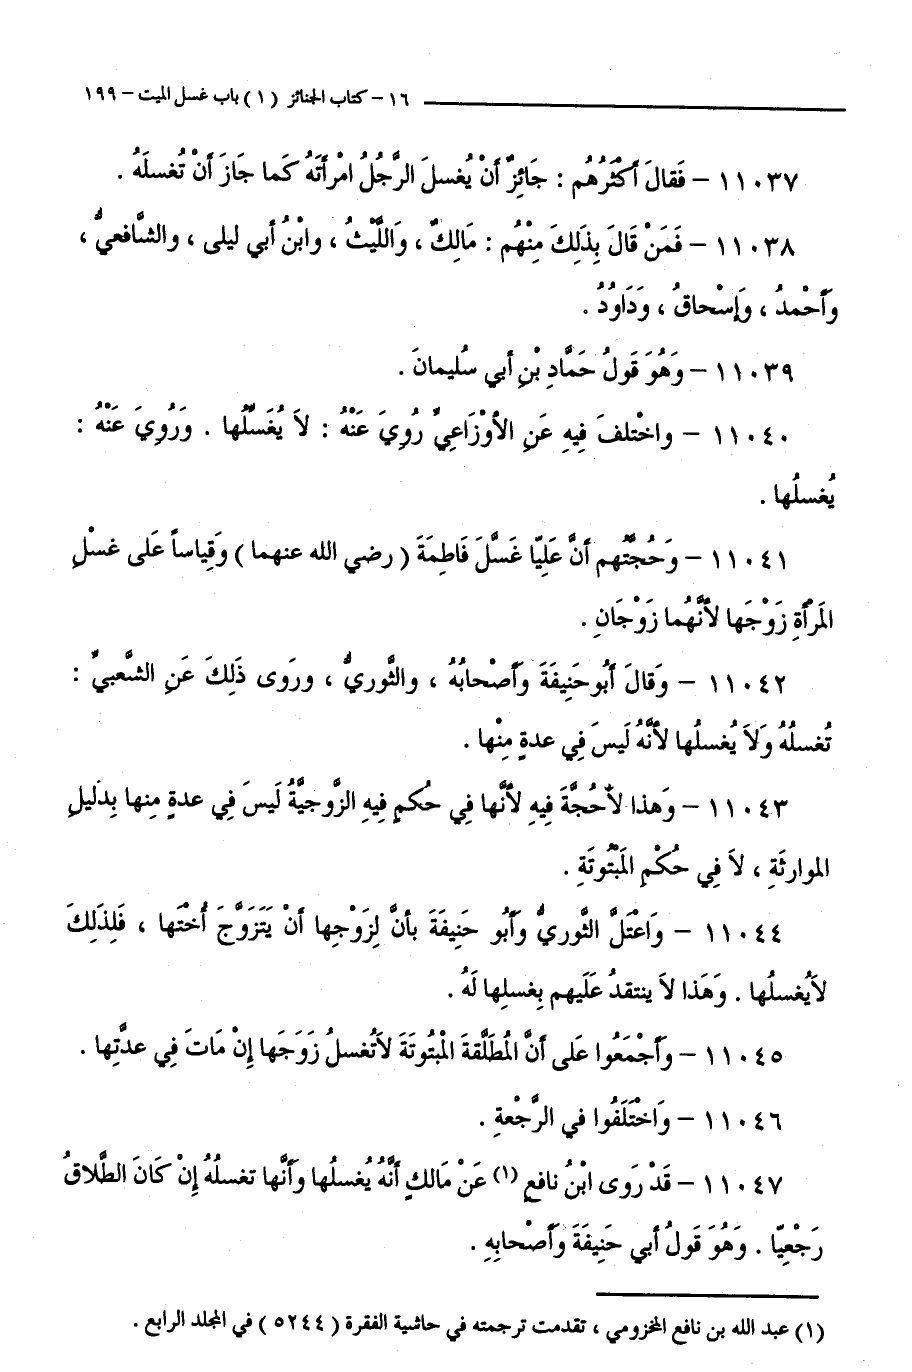 ١٦ - كتاب الجنائز (١) باب غسل الميت - ١٩٩
١١٠٣٧ - فَقالَ أَكْثَرُهُم : جَائِزٌ أَنْ يُغسلَ الرَّجُلُ امْرأَتَهُ كَما جَازَ أَنْ تُغسلَهُ .
١١٠٣٨ - فَمَنْ قَالَ بِذَلِكَ مِنْهُم : مَالِكٌ ، وَاللَّيْثُ ، وابْنُ أبي ليلى ، والشَّافعيُّ ،
وَأَحْمدُ ، وَإِسْحاقُ ، وَدَاوُدُ .
١١٠٣٩ - وَهُوَ قَولُ حَمَّادِ بْنِ أبي سُليمانَ .
١١٠٤٠ - واخْتلفَ فِيهِ عَنِ الأوْزَاعِيِّ رُوِيَ عَنْهُ : لاَ يُغَسِّلُها . وَرُوِيَ عَنْهُ :
يُغسلُها .
١١٠٤١ - وَحُجَّتُهم أنَّ عَلِيّا غَسَّلَ فَاطِمَةَ ( رضي الله عنهما ) وَقِياساً عَلى غسْلِ
المَرْأةِ زَوْجَها لأنَّهُما زَوْجَانِ .
١١٠٤٢ - وَقالَ أَبُو حَنِيفَةَ وَأَصْحابُهُ ، والثَّوريُّ ، ورَوى ذَلِكَ عَنِ الشَّعبيِّ :
تُغسلُهُ وَلاَ يُغسلُها لأنَّهُ لَيسَ فِي عدةٍ مِنْها .
١١٠٤٣ - وَهذا لاَ حُجَّةَ فِيهِ لأنَّها فِي حُكمٍ فِيهِ الزَّوجيَّةُ لَيسَ فِي عدةٍ مِنها بِدَليلِ
الموارثَةِ ، لاَ فِي حُكْمِ المَبْتُوتَةِ .
١١٠٤٤ - وَاعْتَلَّ الثَّوريُّ وَأَبُو حَنِيفَةَ بأنَّ لِزَوْجِها أنْ يَتَزَوَّجَ أُخْتَها ، فَلِذَلِكَ
لاَيُغسلُها . وَهَذا لاَ ينتقدُ عَلَيهم بِغسلِها لَهُ .
١١٠٤٥ - وَأَجْمَعُوا عَلى أنَّ المُطَلَّقةَ المْبتُوتَةَ لاَتُغسلُ زَوَجَها إِنْ مَاتَ فِي عدَّتِها .
١١٠٤٦ - وَاخْتَلَفُوا في الرَّجْعةِ .
١١٠٤٧ - قَدْ رَوى ابْنُ نافعٍ (١) عَنْ مَالكٍ أنَّهُ يُغسلُها وَأنَّها تغسلُهُ إِنْ كَانَ الطَّلاقُ
رَجْعِيّا . وَهُوَ قَولُ أبي حَنِيفَةَ وَأَصْحابِهِ .
(١) عبد الله بن نافع المخزومي ، تقدمت ترجمته في حاشية الفقرة ( ٥٢٤٤ ) في المجلد الرابع .